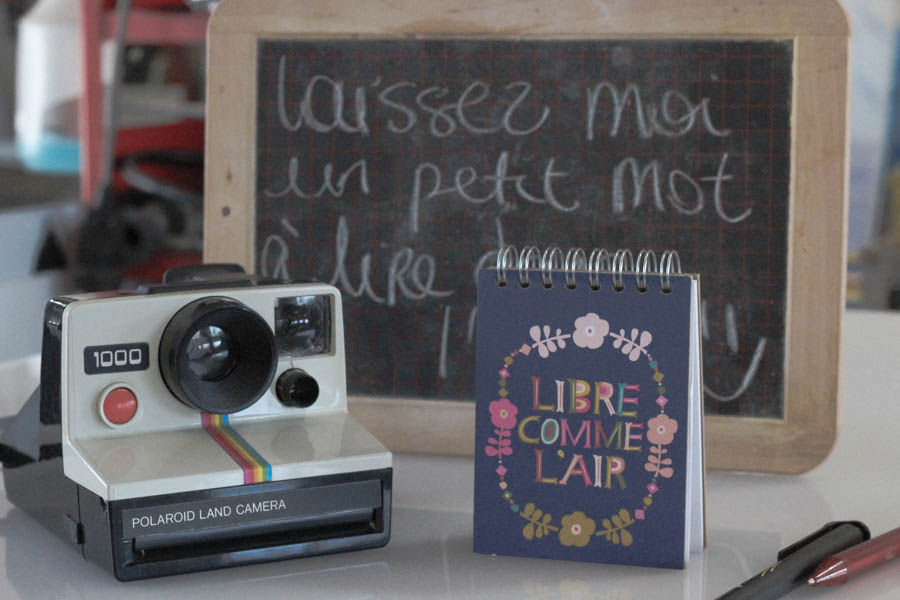 laissez moi
un petit mot
à lire
1000
POLAROID LAND CAMERA
LIBRE
COMME
L'AIR